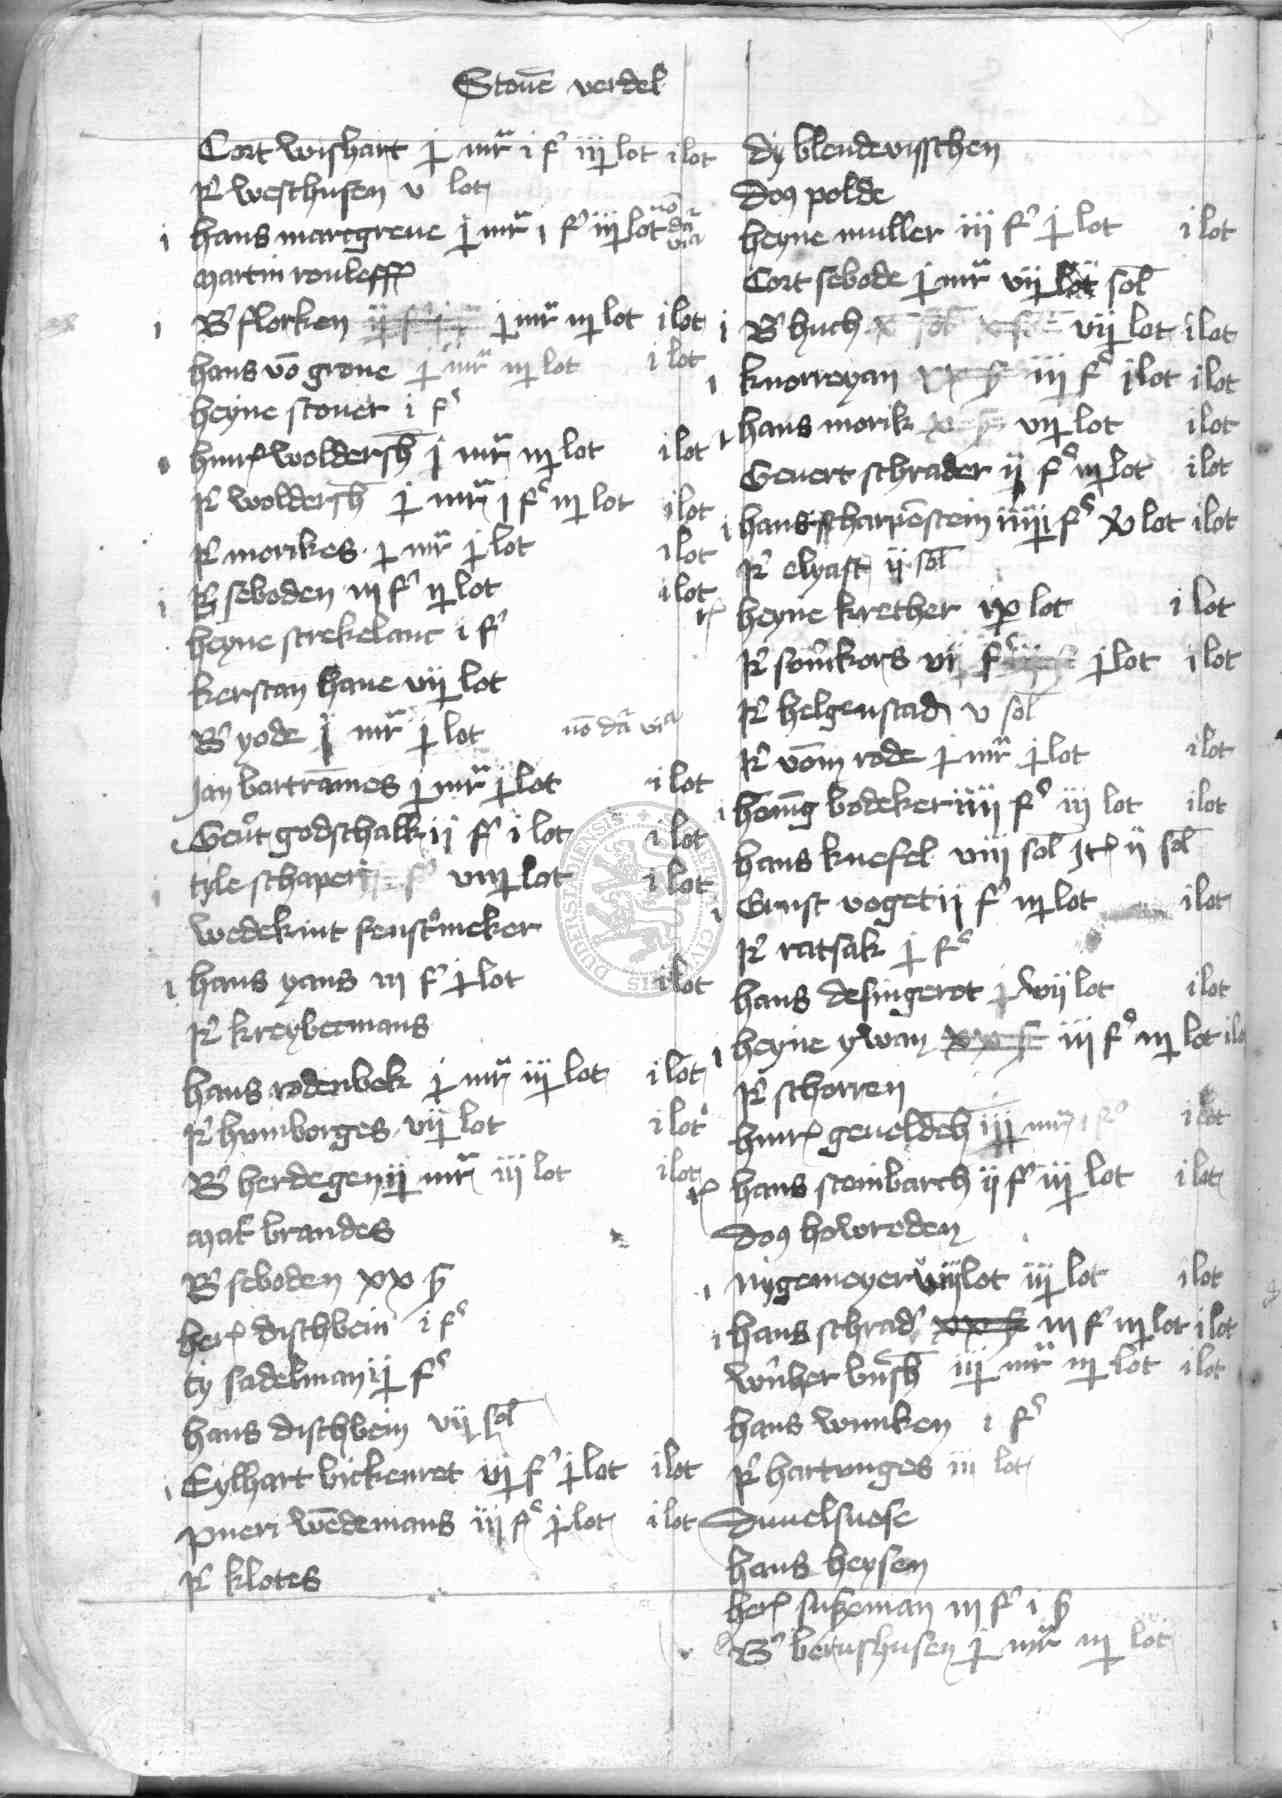 Stoue᷑ verdel
Cort wishart j mr i f iij lot i lot
R westhusen v lot
i hans marcgreue j mr i f iij lot
Martin rouleff
i B florken j mr iij lot i lot
hans vō grone j mr iij lot i lot
heyne stouer i f
hinr woldersh j mr iij lot i lot
R woldersh j mr j f iij lot i lot
R morikes j mr j lot i lot
i R seboden iij f ij lot i lot
heyne strekelant i f
kerstan hane vij lot
B yode j mr j lot nō dā vĩa
Jan bertrāmes j mr j lot i lot
Geu't godschalk ij f i lot i lot
i tyle schaper viij lot i lot
wedekint fenst'meker
i hans yans iij f j lot i lot
R kreybetmans
hans rodenbek j mr iij lot i lot
R humborges vij lot i lot
B herdegen ij mr iij lot i lot
Mat brandes
B seboden xx ß
her dischbein i f
ty sadelman ij f
hans dischbein vij sol
i Eylhart bickenrot vj f j lot i lot
pueri wēdemans iij f j lot i lot
R klotes
dy blendevisschen
Don polde
heyne muller iij f j lot i lot
Cort sebode j mr vij lot sol
i B huch vij lot i lot
i knorreyan iij f j lot i lot
i hans morik vij lot i lot
Geuert schrader ij f iij lot i lot
i hans scharpēstein iiij f lot i lot
R elyast ij sol
heyne krether ix lot i lot
R som'kors vj f j lot i lot
R helgenstad v sol
R vōm rode j mr j lot i lot
i henīg bodeker iiij f iij lot i lot
hans knefel viij sol It ij sol
i Ernst voget ij f iij lot i lot
R ratsak j f
hans desingerot j vij lot i lot
i heyne ywan xx ß iij f iij lot i lot
R schorren
hinr geueldeh iij mr i f i lot
hans steinbarch ij f iij lot i lot
Don howroden
i Nygemeyer viij lot iij lot i lot
i hans schrad' xx ß iij f iij lot i lot
iij mr iij lot i lot
hans winken i f
R hartunges iij lot
Duuelsnese
hans heysen
her suseman iij f i ß
B bernshusen j mr iij lot